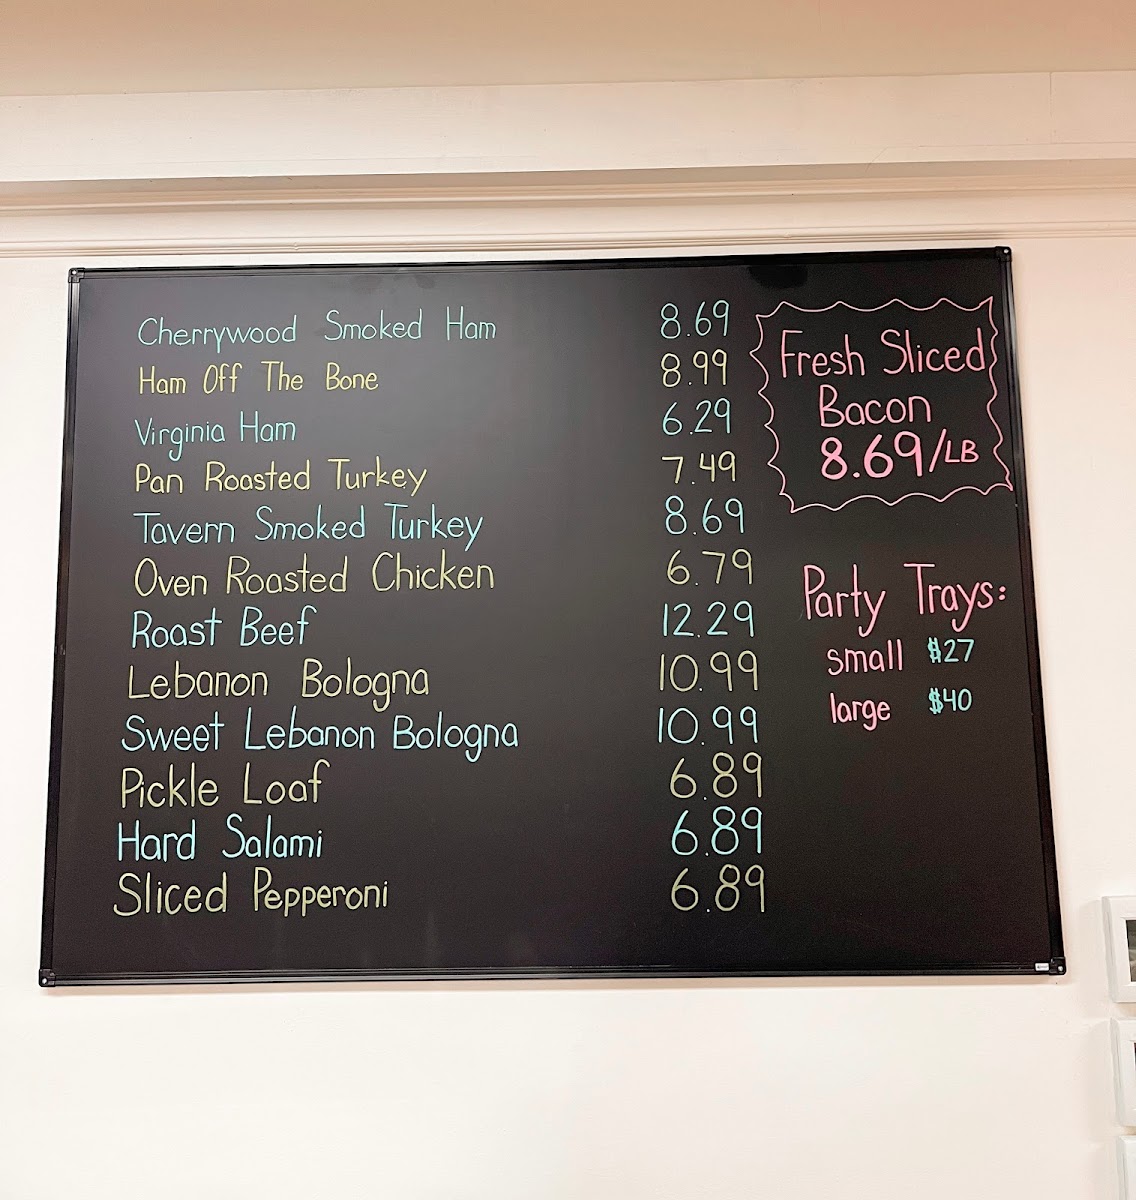 Cherrywood Smoked Ham 8.69
Ham Off The Bone 8.99
Virginia Ham 6.29
Pan Roasted Turkey 7.49
Tavern Smoked Turkey 8.69
Oven Roasted Chicken 6.79
Roast Beef 12.29
Lebanon Bologna 10.99
Sweet Lebanon Bologna 10.99
Pickle Loaf 6.89
Hard Salami 6.89
Sliced Pepperoni 6.89
Fresh Sliced
Bacon
8.69/LB
Party Trays:
small $27
large $40